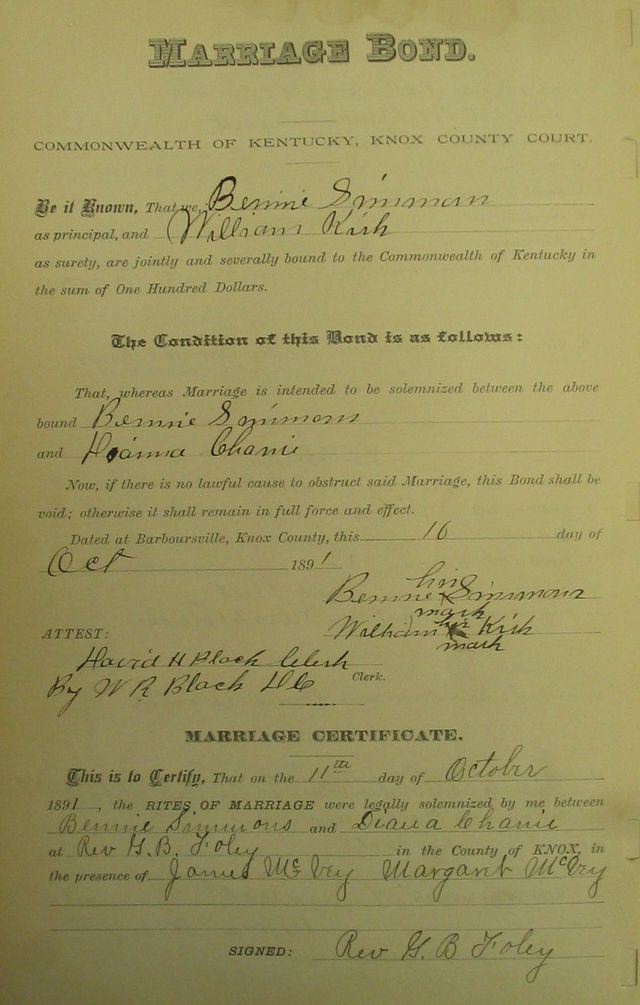 MARRIAGE BOND.
COMMONWEALTH OF KENTUCKY, KNOX COUNTY COURT.
Be it Known, That we, Bennie Simmons
as principal, and William Kirk
as surety, are jointly and severally bound to the Commonwealth of Kentucky in
the sum of One Hundred Dollars.
The Condition of this Bond is as follows:
That, whereas Marriage is intended to be solemnized between the above
bound Bennie Simmons
and Dianna Chanie
Now, if there is no lawful cause to obstruct said Marriage, this Bond shall be
void; otherwise it shall remain in full force and effect.
Dated at Barboursville, Knox County, this 10 day of
Oct 1891
his
Bennie x Simmons
mark
his
William x Kirk
mark
ATTEST:
David H Black Clerk
By W R Black DC Clerk.
MARRIAGE CERTIFICATE.
This is to Certify, That on the 11th day of October
1891, the RITES OF MARRIAGE were legally solemnized by me between
Bennie Simmons and Diana Chanie
at Rev G. B. Foley in the County of KNOX, in
the presence of James McVey Margaret McVey
SIGNED: Rev G. B Foley